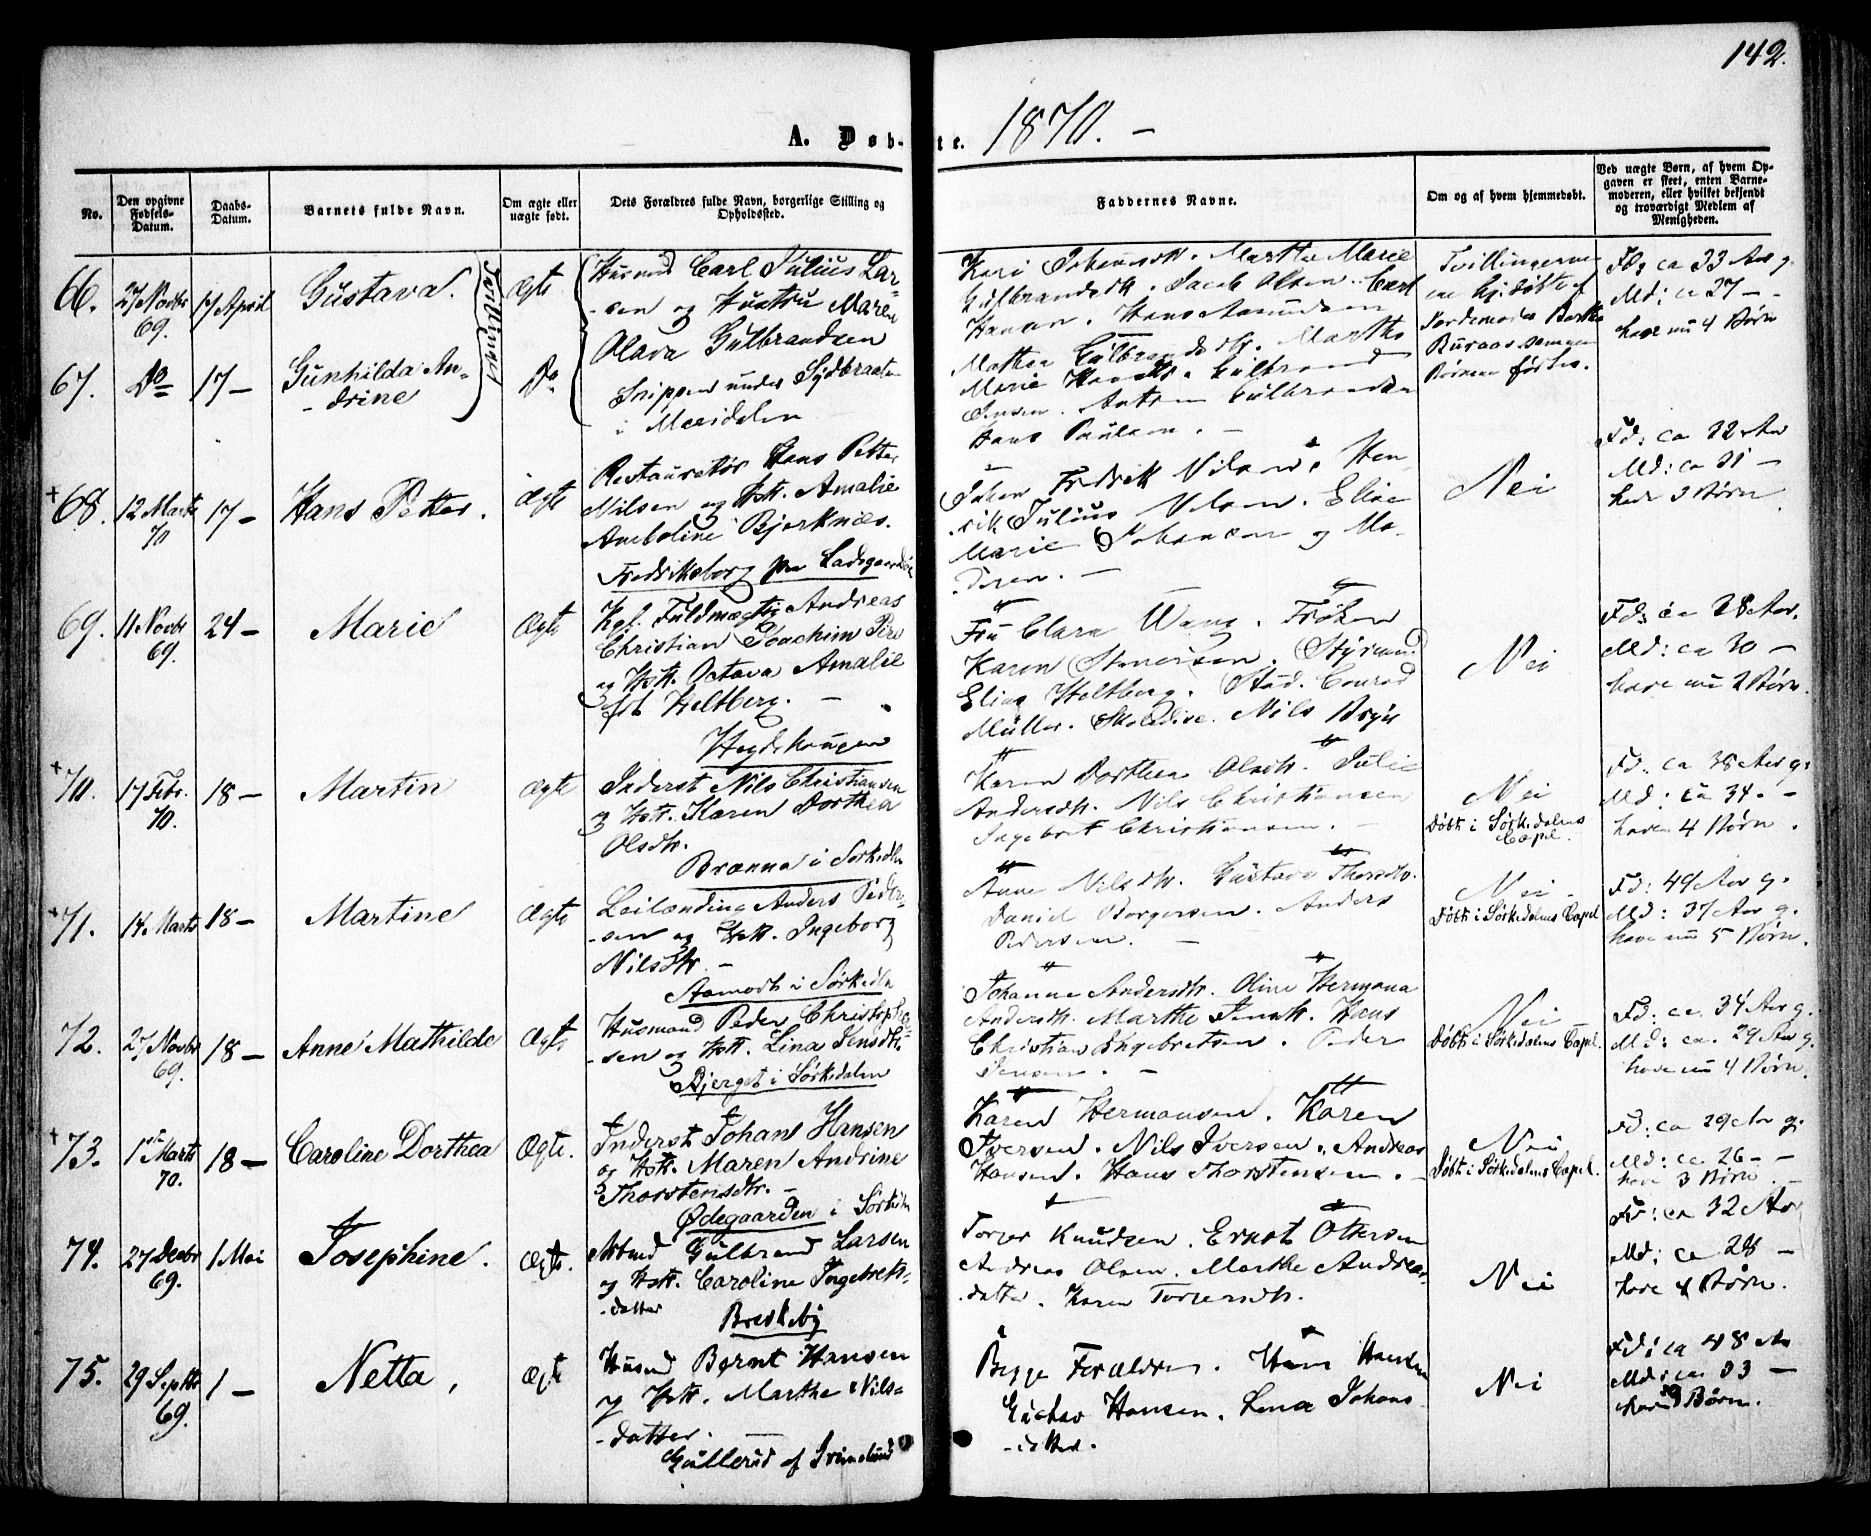 142.
A. Døb-te. 1870. –
No.
Den opgivne Fødsels-Datum.
Daabs-Datum.
Barnets fulde Navn.
Om ægte eller uægte født.
Dets Forældres fulde Navn, borgerlige Stilling og Opholdssted.
Faddernes Navne.
Om og af hvem hjemmedøbt.
Ved uægte Børn, af hvem Opgaven er skeet, enten Barnemoderen, eller hvilket bekjendt og troværdigt Medlem af Menigheden.
66. 27 Novbr 69. 17 April Gustava. Tvillinger Ægte
Husmd Carl Julius Lar-
-sen og Hustru Maren
Olava Gulbrandsen
67. Do 17 – Gunhilda An-
- drine Do
under Sydbraaten
i Maridalen
Kari Johannsdtr. Marthe Marie
Gulbrandsdtr. Jacob Olsen. Carl
Hansen. Hans Asmundsen
Mathea Gulbrandsdtr. Marthe
Marie Gulbrand
Jensen. Anton Gulbrandsen
Hans Paulsen. –
Tvillingerne
ere hj. døbte af
Jordemoder Berthe
Buraas sammen
førtes.
Fd: ca 33 Aar g.
Md: ca 27 – -
have nu 4 Børn
+ 68. 12 Marts 70 17 – Hans Petter. Ægte
Restauratør Hans Petter
Nilsen og Hstr. Amalie
Bjerknæs.
Fredriksborg paa Ladegaardsø
Johan Fredrik Nilsen. Hen-
-rik Julius Nilsen. Elise
Marie Johansen og Mo-
deren. –
Nei
Fd: ca 32 Aar
Md: ca 31 –
have 3 Børn
69. 11 Novbr 69. 24 – Marie Ægte
Kgl. Fuldmægtig Andreas
Christian Joachim
og Hstr. Octava Amalie
født Holtberg. –
Hegdehaugen
Fru Clara Wang. Frøken
Karen Stenersen. Styrmand
Elias Holtberg. Stud. Conrad
Müller. Nils Bryn
Nei
Fd: ca 28 Aar.
Md: ca 30 –
have nu 2 Børn.
+ 70. 17 Febr. 70. 18 – Martin Ægte
Inderst Nils Christiansen
og Hstr. Karen Dorthea
Olsdtr.
Brenna i Sørkedln
Karen Dorthea Olsdtr. Julie
Andersdtr. Nils Christiansen
Ingebret Christiansen. –
Nei
Døbt i Sørkedalens
Capel.
Fd: ca 38 Aar g.
Md: ca 34. –
have 4 Børn.
+ 71. 14. Marts 18 – Martine Ægte
Leilænding Anders Peder-
-sen og Hstr. Ingeborg
Nilsdtr. –
Aamodt i Sørkedln
Anne Nilsdtr. Gustava Thorsdtr.
Daniel Borgersen. Anders
Pedersen. –
Nei –
Døbt i Sørkedalens Capel
Fd: 49 Aar g.
Md: 37 Aar g.
have nu 5 Børn.
72. 27 Novbr 69. 18 – Anne Mathilde Ægte
Husmand Peder Christophe-
-sen og Hstr. Lina Jensdtr.
Bjerget i Sørkedalen
Johanne Andersdtr. Oline Hermana
Andersdtr. Marthe Jensdtr. Hans
Christian Ingebretsen. Peder
Jensen. –
Nei
Døbt i Sørkedalens Capel.
Fd: ca. 34 Aar g.
Md: ca. 29 Aar g.
have nu 4 Børn.
+ 73. 1ste Marts 70. 18 – Caroline Dorthea Ægte.
Inderst Johans Hansen
og Hstr. Maren Andrine
Thorstensdtr. –
Ødegaarden i Sørkedln
Karen Hermansen. Karen
Iversen. Nils Iversen. Andreas
Hansen. Hans Thorstensen. –
Nei
Døbt i Sørkedalens Capel.
Fd: ca 29 Aar g.
Md: ca 26 – -
have 3 Børn. –
74. 27 Decbr 69. 1 Mai Josephine. Ægte.
Arbmd Gulbrand Larsen
og Hstr. Caroline Ingebrets-
- datter
Briskeby
Torger Knudsen. Ernst Ottersen
Andreas Olsen. Marthe Andreas-
-datter. Karen Torgersdtr.
Nei
Fd: ca 32 Aar
Md: ca 28 –
have 4 Børn.
75. 29 Septbr 69. 1 – Netta, Ægte
Husmd Bernt Hansen
og Hstr. Marthe Nils-
- datter. –
Gullerud af
Begge Forældre. Hans Hansen
Gustav Hansen. Lena Johans
-datter.
Nei
Fd: ca 48 Aar
Md: ca. 33 –
have Børn.